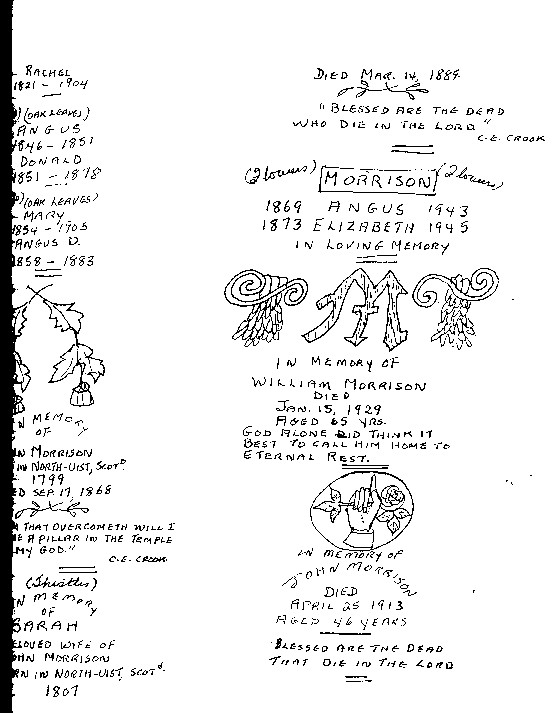 RACHEL
1821 - 1904
(OAK LEAVES)
ANGUS
1846 - 1851
DONALD
1851 - 1878
(OAK LEAVES)
MARY
1854 - 1905
ANGUS D.
1858 - 1883
IN MEMORY
OF
MORRISON
IN NORTH-UIST, SCOTD
1799
SEP 17, 1868
THAT OVERCOMETH WILL I
A PILLAR IN THE TEMPLE
MY GOD."
C.E. CROOK
(Thistles)
IN MEMORY
OF
SARAH
BELOVED WIFE OF
JOHN MORRISON
IN NORTH-UIST, SCOTD.
1807
DIED MAR. 14, 1884
"BLESSED ARE THE DEAD
WHO DIE IN THE LORD."
C.E. CROOK
(flowers) MORRISON (flowers)
1869 ANGUS 1943
1873 ELIZABETH 1945
IN LOVING MEMORY
M
IN MEMORY OF
WILLIAM MORRISON
DIED
JAN. 15, 1929
AGED 65 YRS.
GOD ALONE DID THINK IT
BEST TO CALL HIM HOME TO
ETERNAL REST.
IN MEMORY OF
JOHN MORRISON
DIED
APRIL 25 1913
AGED 46 YEARS
BLESSED ARE THE DEAD
THAT DIE IN THE LORD